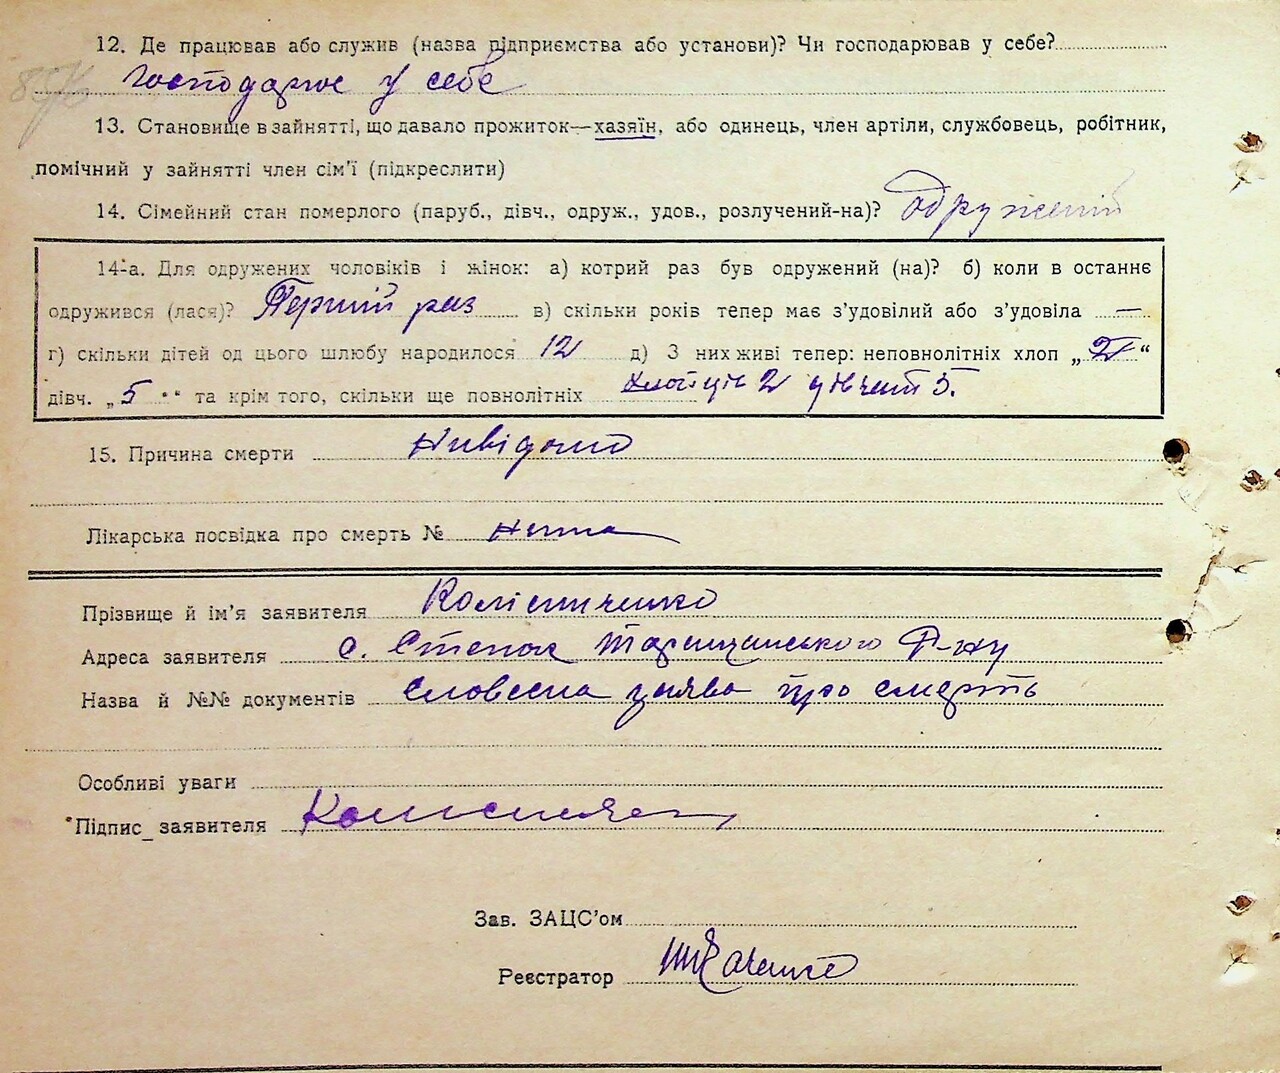 12. Де працював або служив (назва підприємства або установи)? Чи господарював у себе?
господарює у себе
13. Становище в зайнятті, що давало прожиток—хазяїн, або одинець, член артіли, службовець, робітник,
помічний у зайнятті член сім'ї (підкреслити)
14. Сімейний стан померлого (паруб., дівч., одруж., удов., розлучений-на)? одружений
14-а. Для одружених чоловіків і жінок: а) котрий раз був одружений (на)? б) коли в останнє
одружився (лася)? Перший раз в) скільки років тепер має з'удовілий або з'удовіла —
г) скільки дітей од цього шлюбу народилося 12 д) З них живі тепер: неповнолітніх хлоп „2"
дівч. „5" та крім того, скільки ще повнолітніх хлопців 2 дівчат 5.
15. Причина смерти Нивідомо
Лікарська посвідка про смерть № нима
Прізвище й ім'я заявителя
Адреса заявителя с. Степок Таращанського Р-ну
Назва й №№ документів словесна заява про смерть
Особливі уваги
Підпис заявителя
Зав. ЗАЦС'ом
Реєстратор